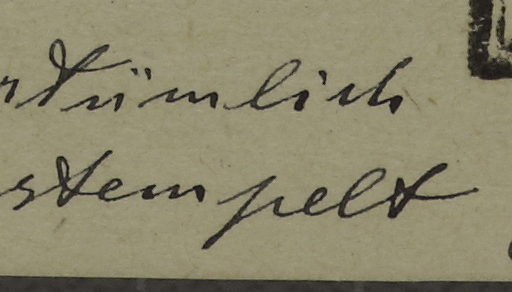 rtümlich
stempelt